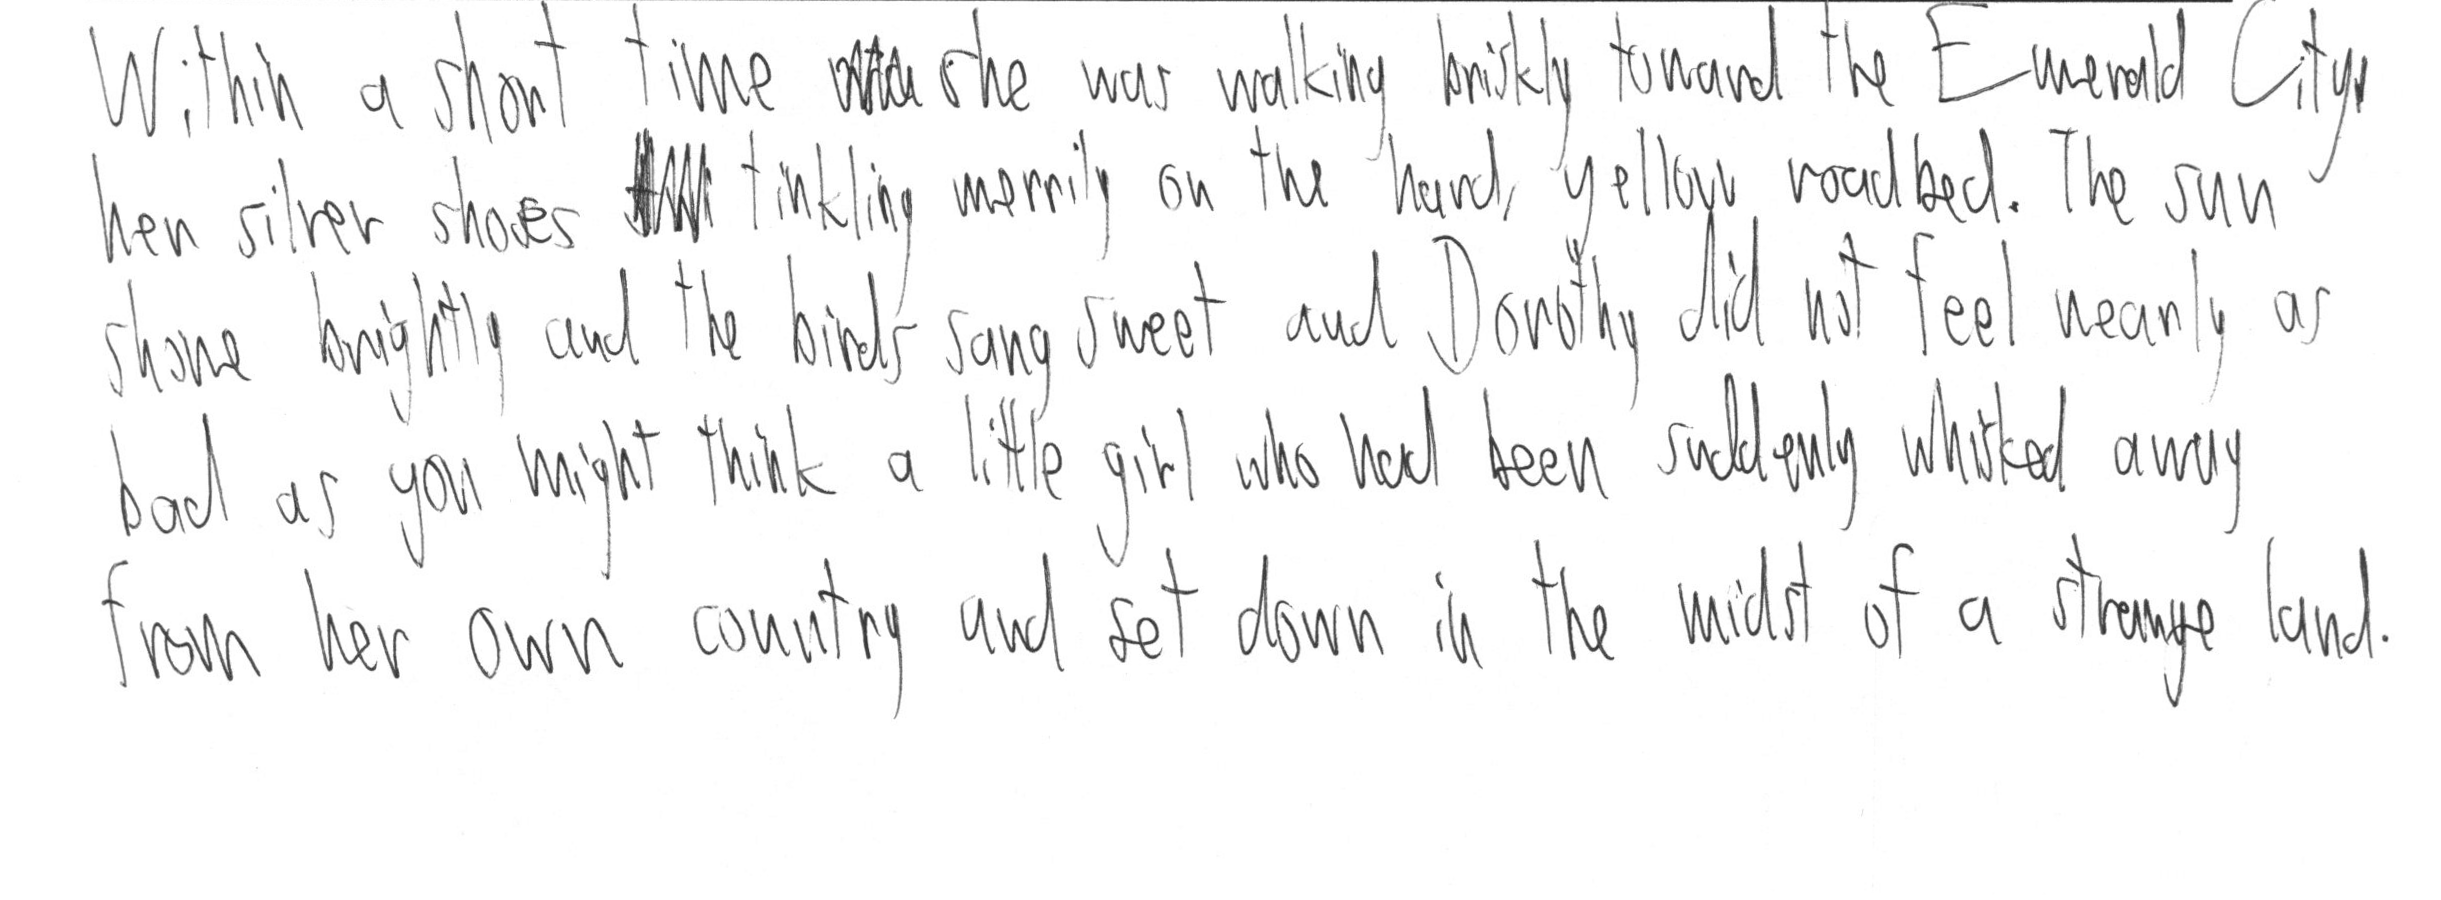 Within a short time she was walking briskly toward the Emerald City,
her silver shoes tinkling merrily on the hard, yellow roadbed. The sun
shone brightly and the birds sang sweet and Dorothy did not feel nearly as
bad as you might think a little girl who had been suddenly whisked away
from her own country and set down in the midst of a strange land.